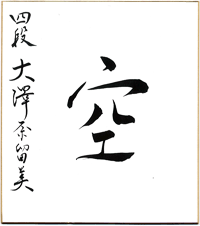 空
四段 大澤奈留美